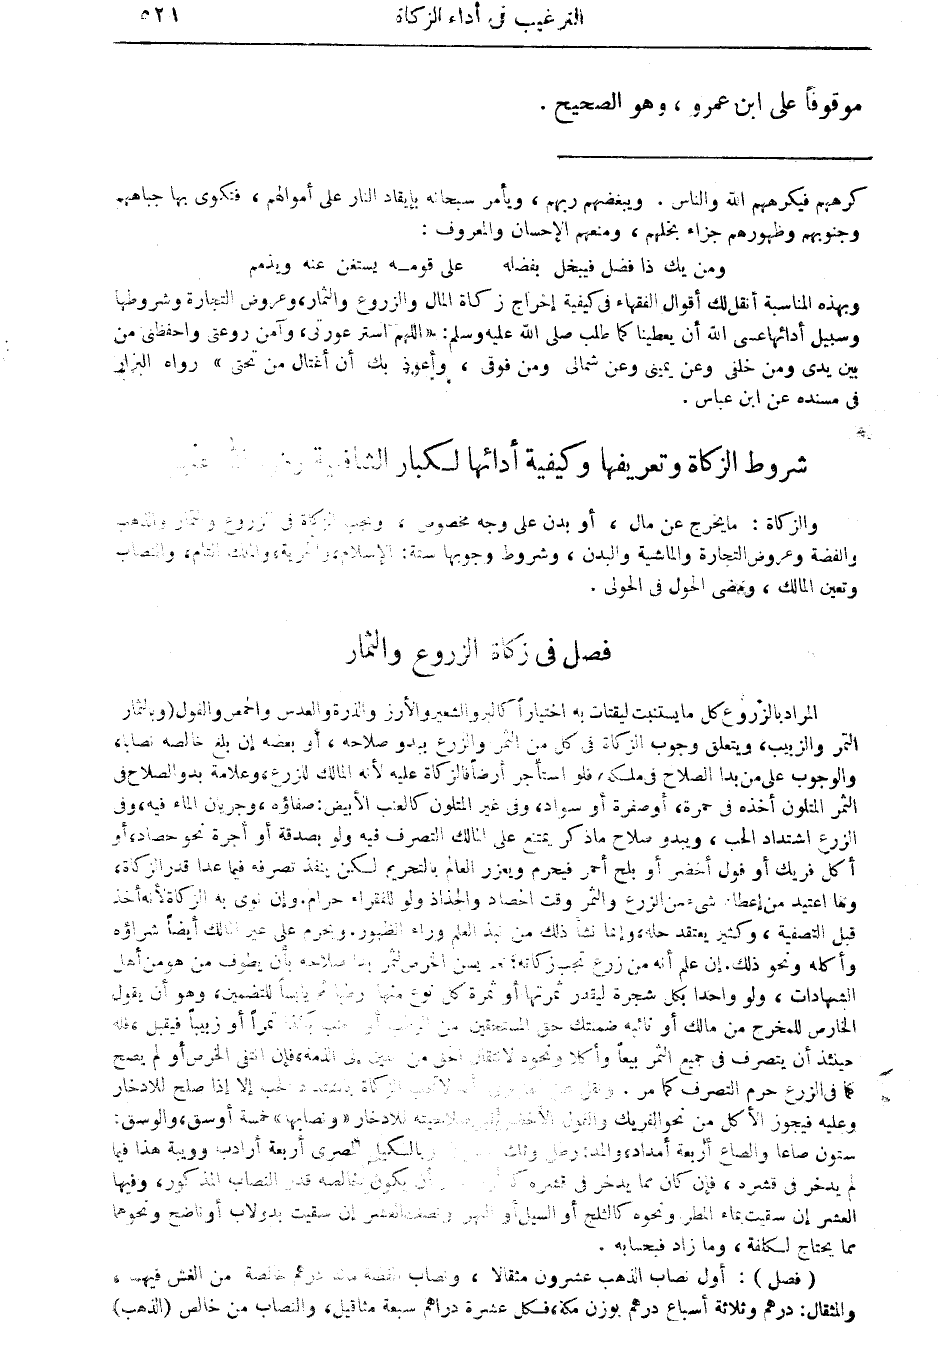 الترغيب فى أداء الزكاة ٥٢١
موقوفاً على ابن عمرو ، وهو الصحيح .
كرههم فيكرههم الله والناس . ويبغضهم ربهم ، ويأمر سبحانه بإيقاد النار على أموالهم ، فتكوى بها جباههم
وجنوبهم وظهورهم جزاء بخلهم ، ومنعهم الإحسان والمعروف :
ومن يك ذا فضل فيبخل بفضله على قومـه يستغن عنه ويذمم
وبهذه المناسبة أنقل لك أقوال الفقهاء فى كيفية إخراج زكاة المال والزروع والثمار، وعروض التجارة وشروطها
وسبيل أدائها عسى الله أن يعطينا كما طلب صلى الله عليه وسلم: «اللهم استر عورتى، وآمن روعتى واحفظنى من
بين يدى ومن خلفى وعن يمينى وعن شمالى ومن فوقى ، وأعوذ بك أن أغتال من تحتى » رواه البزار
فى مسنده عن ابن عباس .
شروط الزكاة وتعريفها وكيفية أدائها لـكبار الشافعية
والزكاة : مايخرج عن مال ، أو بدن على وجه مخصوص ، وتجب الزكاة فى الزروع والثمار والذهب
والفضة وعروض التجارة والماشية والبدن ، وشروط وجوبها ستة: الإسلام، والحرية، والملك التام، والنصاب
وتعين المالك ، ومضى الحول فى الحولى .
فصل فى زكاة الزروع والثمار
المراد بالزروع كل مايستنبت ليقتات به اختياراً كالبر والشعير والأرز والذرة والعدس والحمص والفول (وبالثمار
التمر والزبيب، ويتعلق وجوب الزكاة فى كل من الثمر والزرع ببدو صلاحه ، أو بعضه إن بلغ خالصه نصابا،
والوجوب على من بدا الصلاح فى ملكه، فلو استأجر أرضاً فالزكاة عليه لأنه المالك للزرع، وعلامة بدو الصلاح فى
الثمر المتلون أخذه فى حمرة، أوصفرة أو سواد، وفى غير المتلون كالعنب الأبيض: صفاؤه ، وجريان الماء فيه، وفى
الزرع اشتداد الحب ، وببدو صلاح ماذكر يمتنع على المالك التصرف فيه ولو بصدقة أو أجرة نحو حصاد، أو
أكل فريك أو فول أخضر أو بلح أحمر فيحرم ويعزر العالم بالتحريم لـكن ينفذ تصرفه فيما عدا قدر الزكاة،
وما اعتيد من إعطاء شىء من الزرع والثمر وقت الحصاد والجذاذ ولو للفقراء حرام. وإن نوى به الزكاة لأنه أخذ
قبل التصفية ، وكثير يعتقد حله، وإنما نشأ ذلك من نبذ العلم وراء الظهور. ويحرم على غير المالك أيضاً شراؤه
وأكله ونحو ذلك. إن علم أنه من زرع تجب زكاته؛ نعم يسن الخرص لثمر بدا صلاحه بأن يطوف من هو من أهل
الشهادات ، ولو واحدا بكل شجرة ليقدر ثمرتها أو ثمرة كل نوع منها رطباً ثم يابساً للتضمين، وهو أن يقول
الخارص للمخرج من مالك أو نائبه ضمنتك حق المستحقين من الرطب أو العنب بكذا تمراً أو زبيباً فيقبل، فله
حينئذ أن يتصرف فى جميع الثمر بيعاً وأكلا ونحوه لانتقال الحق من العين إلى الذمة، فإن انتفى الخرص أو لم يصح
كما فى الزرع حرم التصرف كما مر . الزكاة باشتداد الحب إلا إذا صلح للادخار
وعليه فيجوز الأكل من نحو الفريك والفول الأخضر لعدم صلاحيته للادخار « ونصابها» خمسة أوسق، والوسق:
ستون صاعا والصاع أربعة أمداد، والمد: رطل وثلث بالكيل المصرى أربعة أرادب وويبة هذا فيما
لم يدخر فى قشره ، فإن كان مما يدخر فى قشره أن يكون خالصه قدر النصاب المذكور، وفيها
العشر إن سقيت بماء المطر ونحوه كالثلج أو السيل أو النهر ونصف العشر إن سقيت بدولاب أو ناضح ونحوهما
مما يحتاج لـكلفة ، وما زاد فبحسابه .
( فصل ) : أول نصاب الذهب عشرون مثقالا ، ونصاب الفضة مائتا درهم خالصة من الغش فيهما ،
والمثقال: درهم وثلاثة أسباع درهم بوزن مكة، فكل عشرة دراهم سبعة مثاقيل، والنصاب من خالص (الذهب)